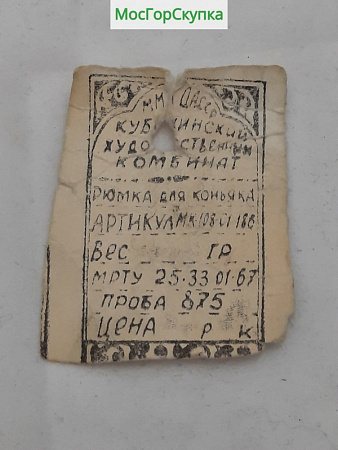 МосГорСкупка
ММП ДАССР
КУБАЧИНСКИЙ
ХУДОЖЕСТВЕННЫЙ
КОМБИНАТ
РЮМКА ДЛЯ КОНЬЯКА
АРТИКУЛ
ВЕС ГР
МРТУ 25.33 01-67
ПРОБА 875
ЦЕНА Р К